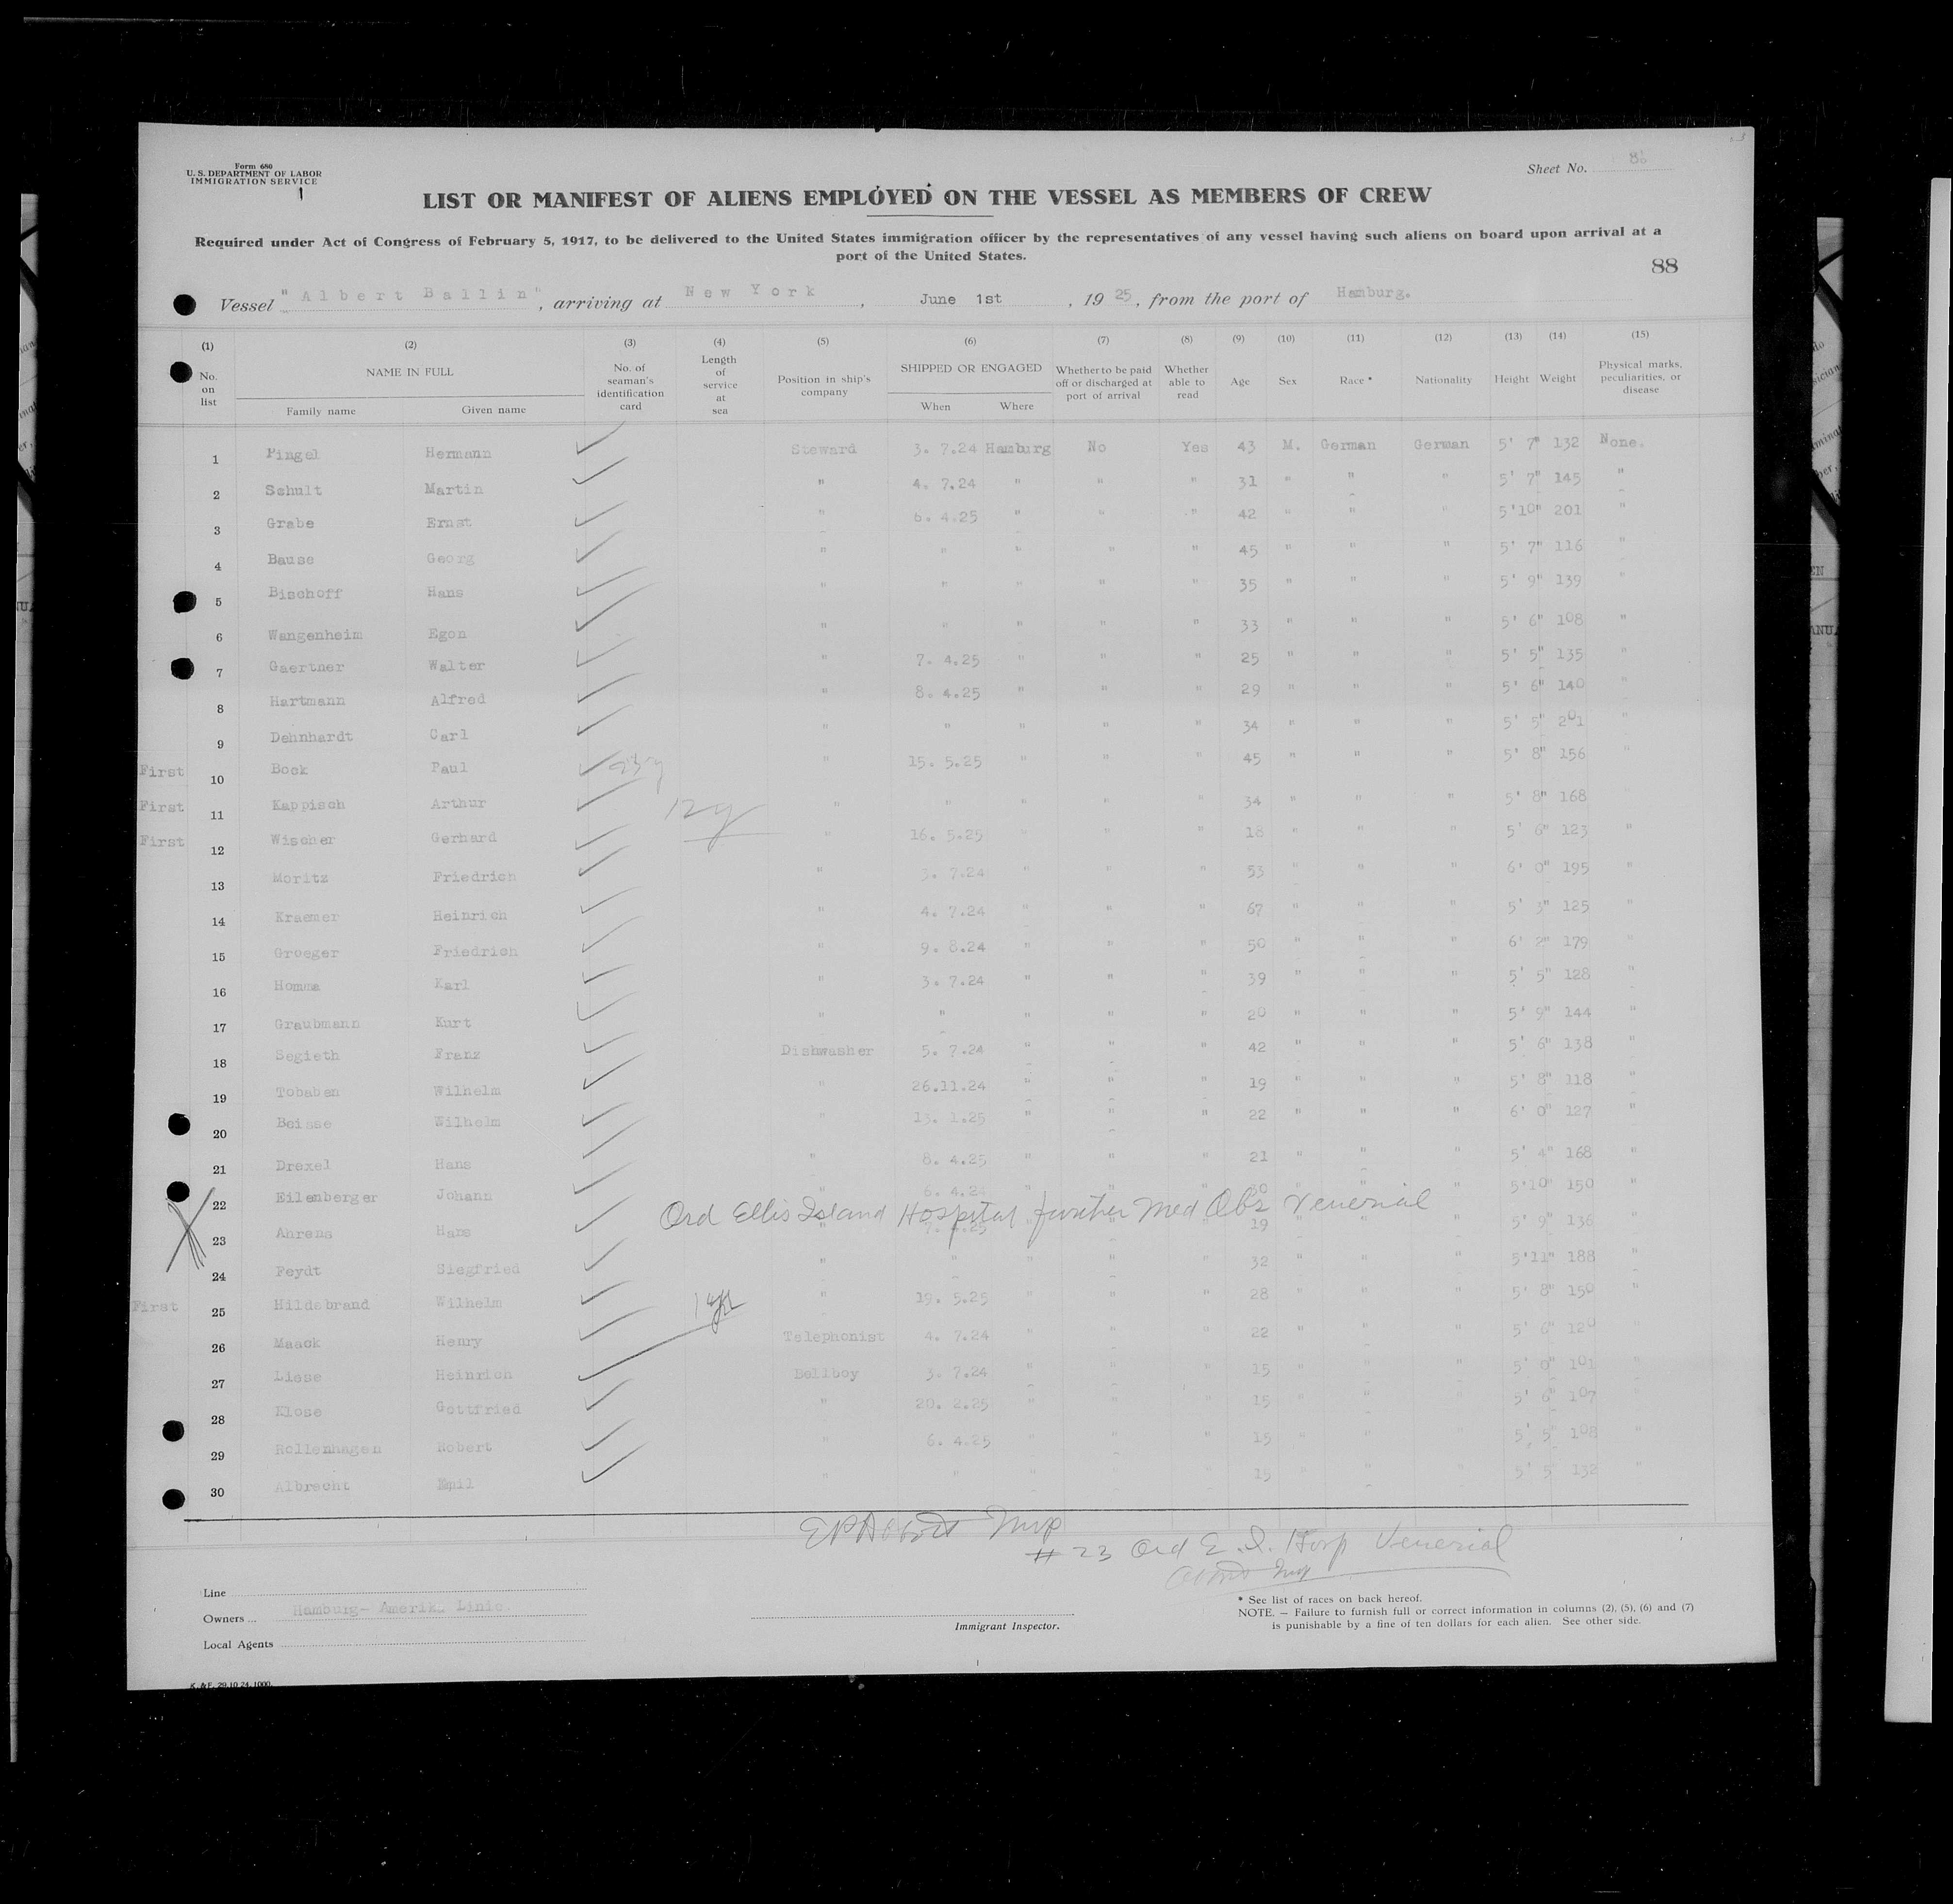 Form 680
U. S. DEPARTMENT OF LABOR
IMMIGRATION SERVICE
Sheet No.
LIST OR MANIFEST OF ALIENS EMPLOYED ON THE VESSEL AS MEMBERS OF CREW
Required under Act of Congress of February 5, 1917, to be delivered to the United States immigration officer by the representatives of any vessel having such aliens on board upon arrival at a
port of the United States.
88
Vessel "Albert Ballin", arriving at New York, June 1st, 1925, from the port of Hamburg.
(1) (2) (3) (4) (5) (6) (7) (8) (9) (10) (11) (12) (13) (14) (15)
No. on list NAME IN FULL Family name Given name No. of seaman's identification card Length of service at sea Position in ship's company SHIPPED OR ENGAGED When Where Whether to be paid off or discharged at port of arrival Whether able to read Age Sex Race * Nationality Height Weight Physical marks, peculiarities, or disease
1 Pingel Hermann Steward 3. 7.24 Hamburg No Yes 43 M. German German 5' 7" 132 None.
2 Schult Martin " 4. 7.24 " " " 31 " " " 5' 7" 145 "
3 Grabe Ernst " 6. 4.25 " " " 42 " " " 5'10" 201 "
4 Bause Georg " " " " " 45 " " " 5' 7" 116 "
5 Bischoff Hans " " " " " 35 " " " 5' 9" 139 "
6 Wangenheim Egon " " " " " 33 " " " 5' 6" 108 "
7 Gaertner Walter " 7. 4.25 " " " 25 " " " 5' 5" 135 "
8 Hartmann Alfred " 8. 4.25 " " " 29 " " " 5' 6" 140 "
9 Dehnhardt Carl " " " " " 34 " " " 5' 5" 201 "
First 10 Bock Paul " 15. 5.25 " " " 45 " " " 5' 8" 156 "
First 11 Kappisch Arthur 12y " " " " " 34 " " " 5' 8" 168 "
First 12 Wischer Gerhard " 16. 5.25 " " " 18 " " " 5' 6" 123 "
13 Moritz Friedrich " 3. 7.24 " " " 53 " " " 6' 0" 195 "
14 Kraemer Heinrich " 4. 7.24 " " " 67 " " " 5' 3" 125 "
15 Groeger Friedrich " 9. 8.24 " " " 50 " " " 6' 2" 179 "
16 Homma Karl " 3. 7.24 " " " 39 " " " 5' 5" 128 "
17 Graubmann Kurt " " " " " 20 " " " 5' 9" 144 "
18 Segieth Franz Dishwasher 5. 7.24 " " " 42 " " " 5' 6" 138 "
19 Tobaben Wilhelm " 26.11.24 " " " 19 " " " 5' 8" 118 "
20 Beisse Wilhelm " 13. 1.25 " " " 22 " " " 6' 0" 127 "
21 Drexel Hans " 8. 4.25 " " " 21 " " " 5' 4" 168 "
22 Eilenberger Johann " 6. 4.24 " " " " " " 5'10" 150 "
Ord Ellis Island Hospital further Med Obs Venerial
23 Ahrens Hans " " " " 19 " " " 5' 9" 136 "
24 Feydt Siegfried " " " " " 32 " " " 5'11" 188 "
First 25 Hildebrand Wilhelm " 19. 5.25 " " " 28 " " " 5' 8" 150 "
26 Maack Henry Telephonist 4. 7.24 " " " 22 " " " 5' 6" 120 "
27 Liese Heinrich Bellboy 3. 7.24 " " " 15 " " " 5' 0" 101 "
28 Klose Gottfried " 20. 2.25 " " " 15 " " " 5' 6" 107 "
29 Rollenhagen Robert " 6. 4.25 " " " 15 " " " 5' 5" 108 "
30 Albrecht Emil " " " " " 15 " " " 5' 5 132 "
Insp
# 23 Ord E. I. Hosp Venerial
Insp
Line
Owners Hamburg- Amerik. Linie.
Local Agents
Immigrant Inspector.
* See list of races on back hereof.
NOTE. — Failure to furnish full or correct information in columns (2), (5), (6) and (7)
is punishable by a fine of ten dollars for each alien. See other side.